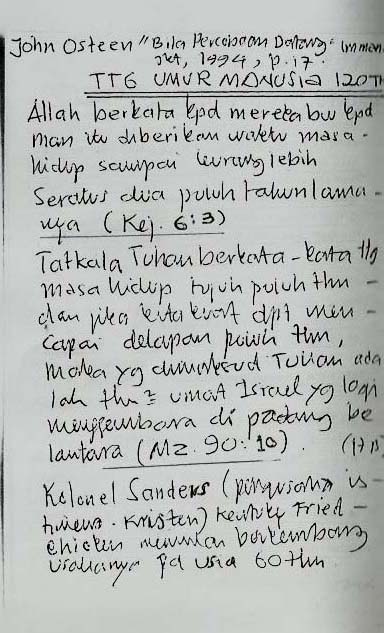 John Osteen "Bila Percobaan Datang" Imman
Jkt, 1994, p.17.
TTG UMUR MANUSIA 120TH
Allah berkata kpd mereka bw kpd
man itu diberikan waktu masa-
hidup sampai kurang lebih
Seratus dua puluh tahun lama-
nya (Kej. 6:3)
Tatkala Tuhan berkata-kata ttg
masa hidup tujuh puluh thn -
dan jika kita kuat dpt men-
capai delapan puluh thn,
maka yg dimaksud Tuhan ada
lah thn² umat Israel yg lagi
menggembara di padang be
lantara (Mz. 90:10). (17)
Kolonel Sanders (pengusaha is-
. Kristen) Kentucky Fried -
Chicken berkembang
usahanya pd usia 60 thn.